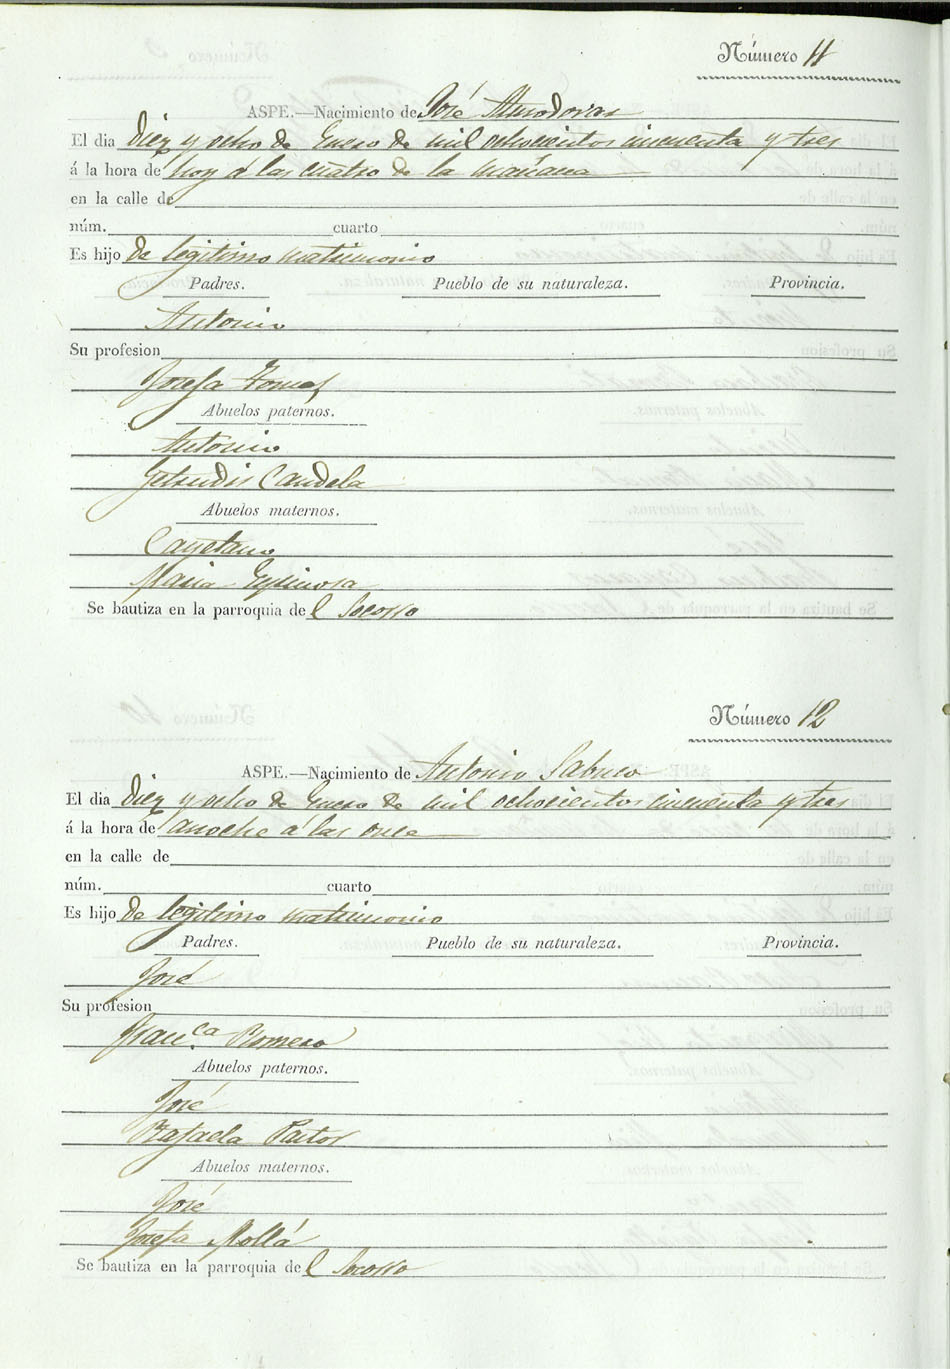 Número 11
ASPE.—Nacimiento de José Almodovar
El dia Diez y ocho de Enero de mil ochocientos cincuenta y tres
á la hora de hoy á las cuatro de la mañana
en la calle de
núm. cuarto
Es hijo de legitimo matrimonio
Padres. Pueblo de su naturaleza. Provincia.
Antonio
Su profesion
Josefa Gomez
Abuelos paternos.
Antonio
Getrudis Candela
Abuelos maternos.
Cayetano
Maria Espinosa
Se bautiza en la parroquia del Socorro
Número 12
ASPE.—Nacimiento de Antonio Sabuco
El dia Diez y ocho de Enero de mil ochocientos cincuenta y tres
á la hora de anoche á las once
en la calle de
núm. cuarto
Es hijo de legitimo matrimonio
Padres. Pueblo de su naturaleza. Provincia.
José
Su profesion
Franca Romero
Abuelos paternos.
José
Rafaela Pastor
Abuelos maternos.
José
Josefa Mollá
Se bautiza en la parroquia del Socorro